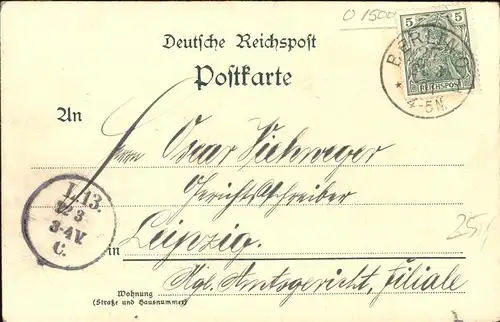 O 1500
5 5
REICHSPOST
BERLIN
4-5N.
Deutsche Reichspost
Postkarte
An
Herrn Oscar Viehweger
Gerichtsschreiber
in Leipzig.
Kgl. Amtsgericht, Filiale
L.13.
12 3
3-4V.
C.
25,-
Wohnung
(Straße und Hausnummer)